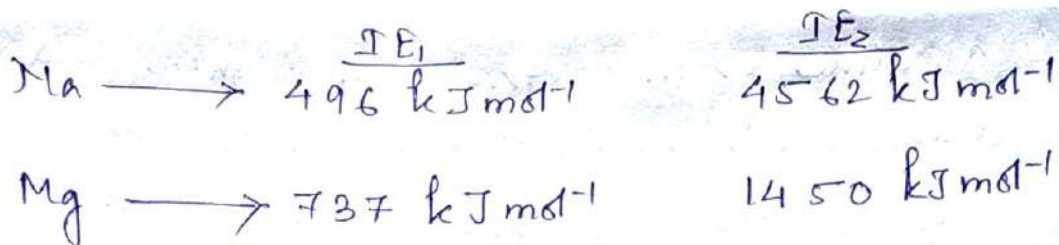 IE₁ IE₂
Na → 496 kJ mol⁻¹ 4562 kJ mol⁻¹
Mg → 737 kJ mol⁻¹ 1450 kJ mol⁻¹